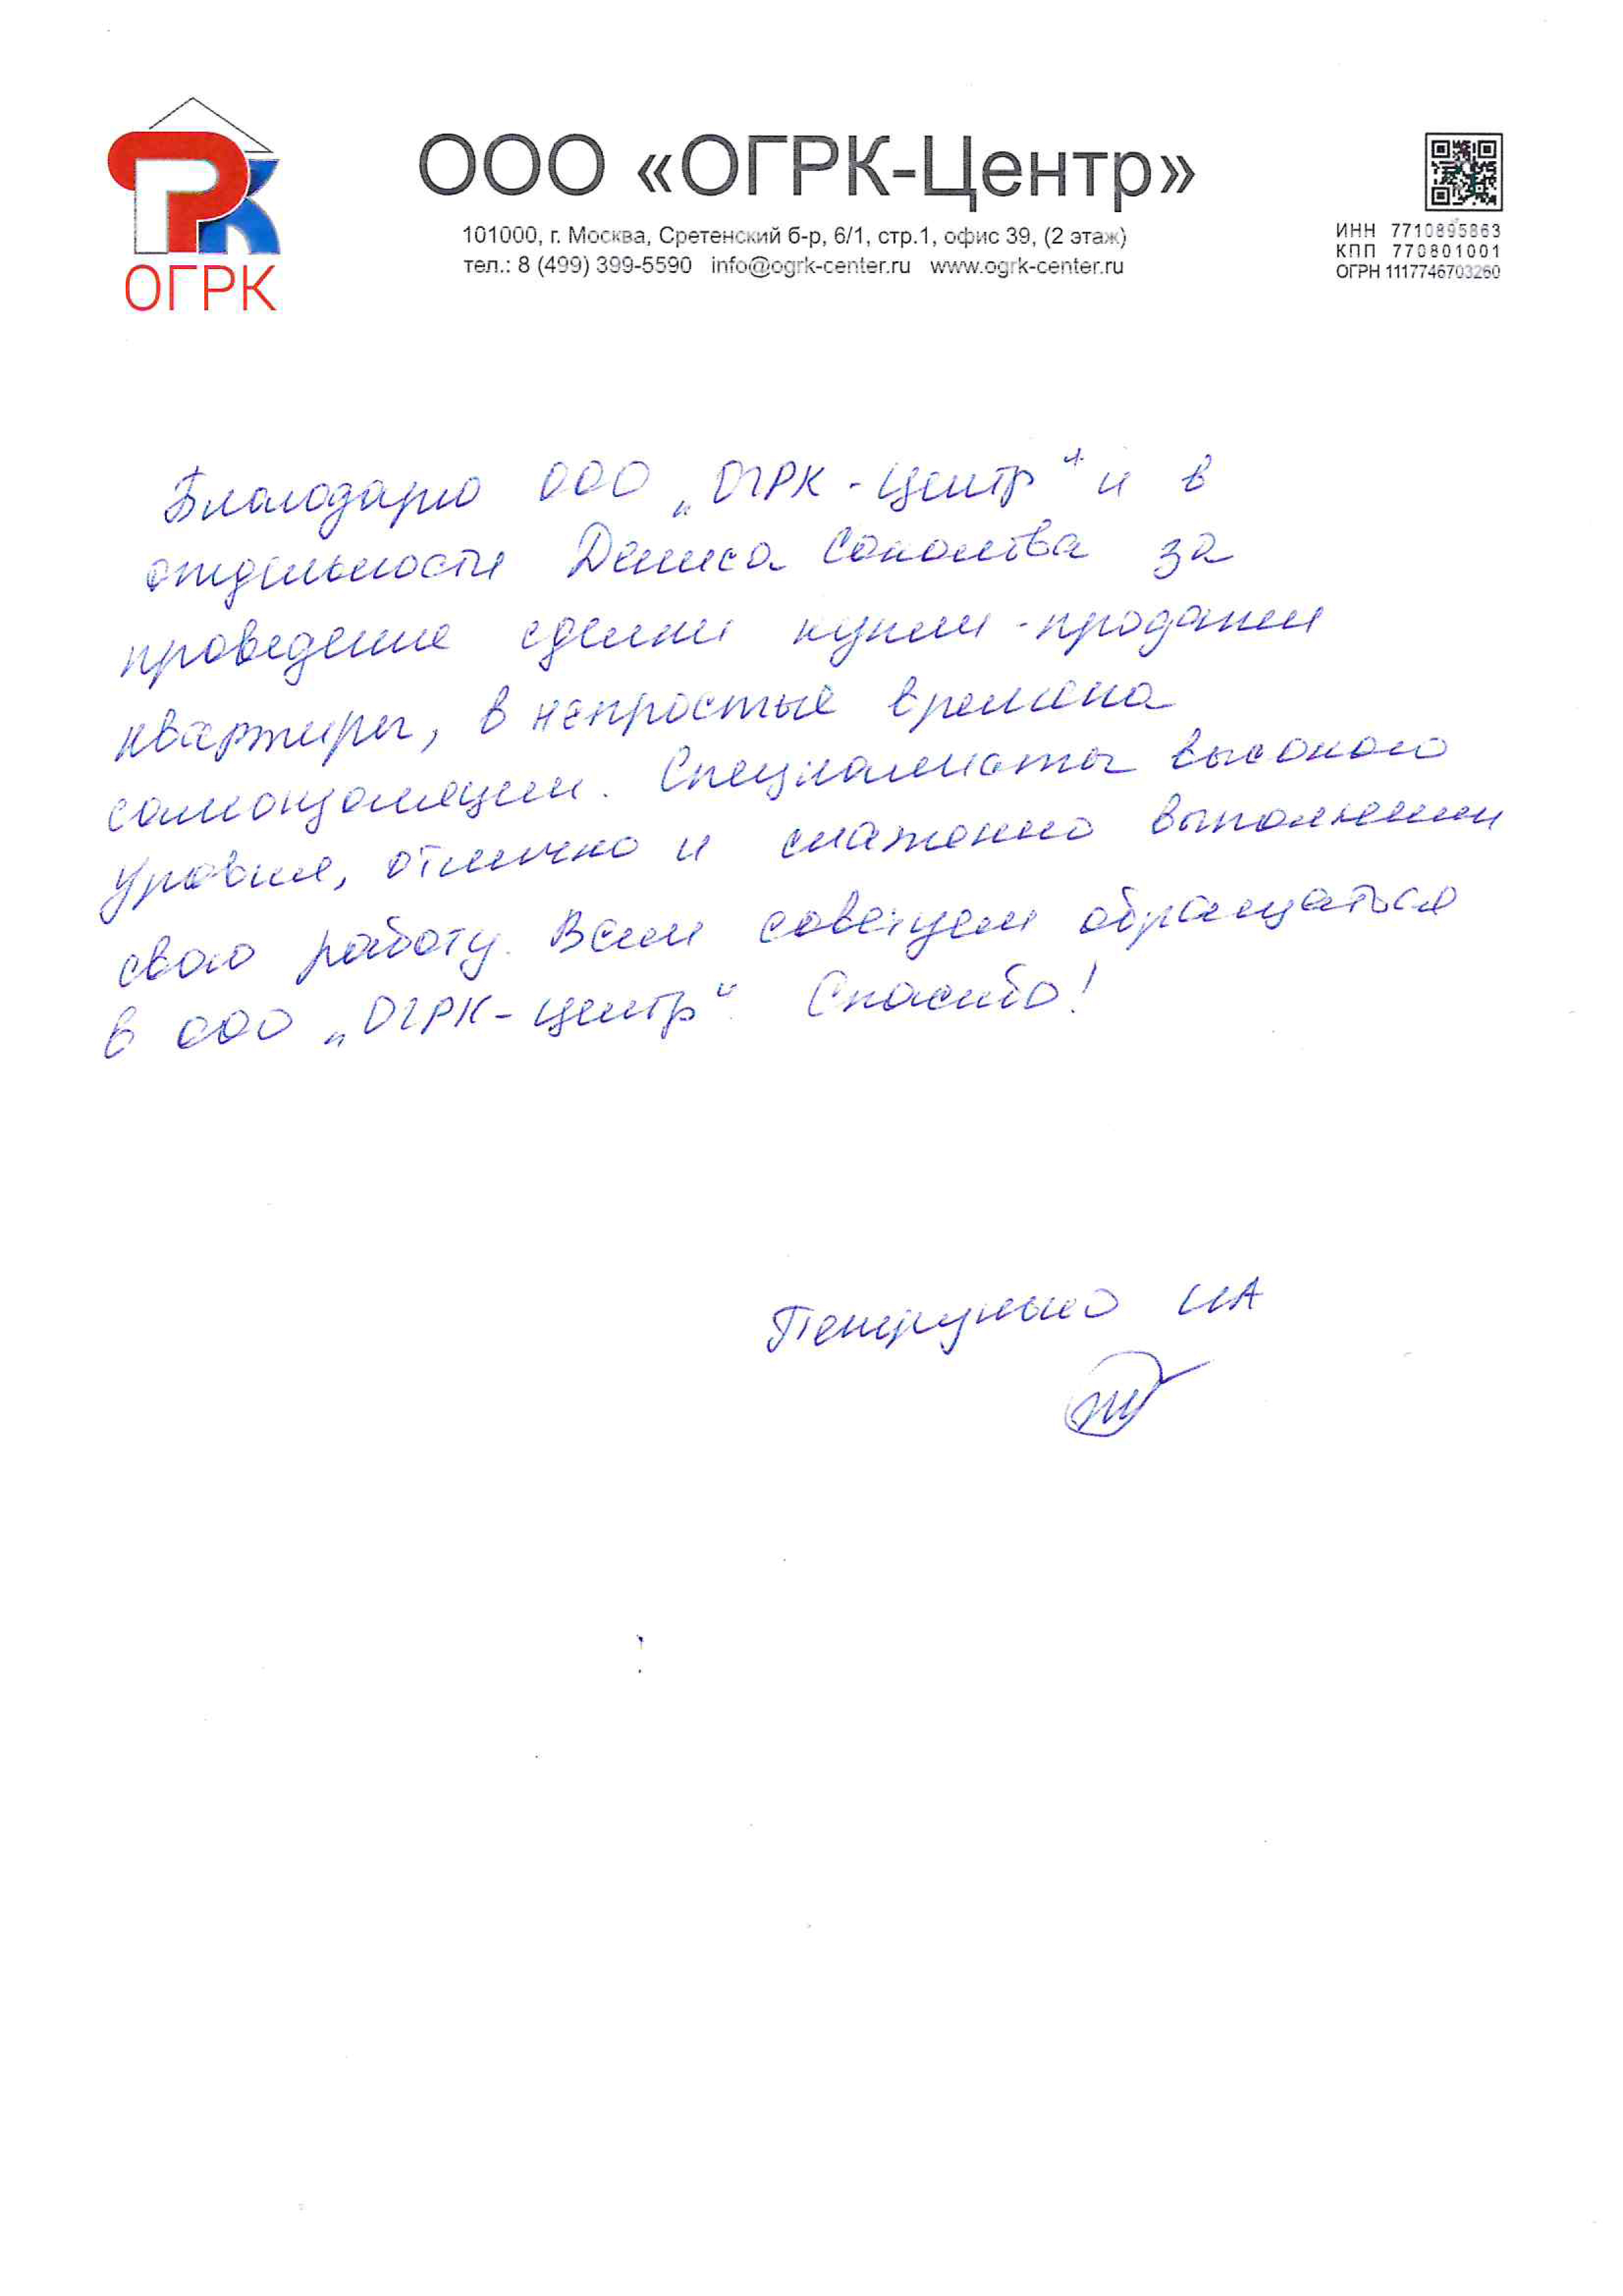 ООО «ОГРК-Центр»
101000, г. Москва, Сретенский б-р, 6/1, стр.1, офис 39, (2 этаж)
тел.: 8 (499) 399-5590 info@ogrk-center.ru www.ogrk-center.ru
ИНН 7710895863
КПП 770801001
ОГРН 1117746703260
ОГРК
Благодарю ООО „ОГРК-Центр“ и в
отдельности Дениса Соколова за
проведение сделки купли-продажи
квартиры, в непростые времена
самоизоляции. Специалисты высокого
уровня, отлично и слаженно выполнили
свою работу. Всем советуем обращаться
в ООО „ОГРК-Центр“. Спасибо!
ИА